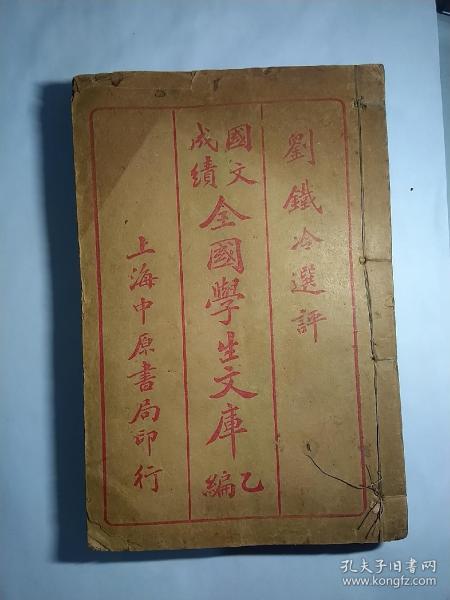 劉鐵冷選評
國文成績
全國學生文庫
乙編
上海中原書局印行
孔夫子旧书网
www.kongfz.com